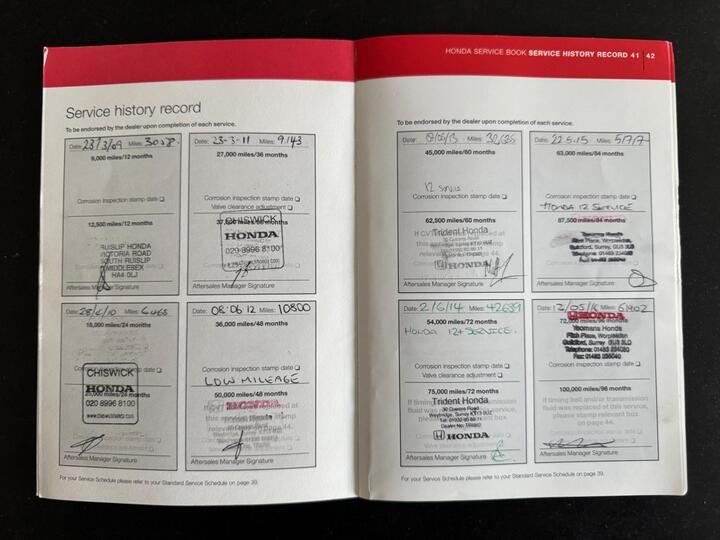 HONDA SERVICE BOOK SERVICE HISTORY RECORD 41 | 42
Service history record
To be endorsed by the dealer upon completion of each service.
Date: 23/3/09 Miles: 3028
9,000 miles/12 months
Corrosion inspection stamp date
12,500 miles/12 months
RUISLIP HONDA
VICTORIA ROAD
SOUTH RUISLIP
MIDDLESEX
HA4 0LJ
Aftersales Manager Signature
Date: 23-3-11 Miles: 9,143
27,000 miles/36 months
Corrosion inspection stamp date
Valve clearance adjustment
CHISWICK
HONDA
020 8996 8100
Aftersales Manager Signature
Date: 28/4/10 Miles: 6465
18,000 miles/24 months
CHISWICK
HONDA
020 8996 8100
Aftersales Manager Signature
Date: 08.06.12 Miles: 10800
36,000 miles/48 months
Corrosion inspection stamp date
LOW MILEAGE
50,000 miles/48 months
HONDA
Aftersales Manager Signature
For your Service Schedule please refer to your Standard Service Schedule on page 39.
To be endorsed by the dealer upon completion of each service.
Date: Miles:
45,000 miles/60 months
12 service
Corrosion inspection stamp date
62,500 miles/60 months
Trident Honda
HONDA
Aftersales Manager Signature
Date: 22.5.15 Miles:
63,000 miles/84 months
Corrosion inspection stamp date
HONDA 12 SERVICE
87,500 miles/84 months
Yeomans Honda
Pitch Place, Worplesdon,
Guildford, Surrey, GU3 3LQ
Aftersales Manager Signature
Date: 2/6/14 Miles: 42639
54,000 miles/72 months
HONDA 12+ SERVICE.
Corrosion inspection stamp date
Valve clearance adjustment
75,000 miles/72 months
Trident Honda
HONDA
Aftersales Manager Signature
Date: Miles: 61902
HONDA
72,000 miles/96 months
Yeomans Honda
Pitch Place, Worplesdon
Guildford, Surrey
Corrosion inspection stamp date
100,000 miles/96 months
If timing belt and/or transmission
fluid was replaced at this service,
please stamp relevant box
on page 44.
Aftersales Manager Signature
For your Service Schedule please refer to your Standard Service Schedule on page 39.